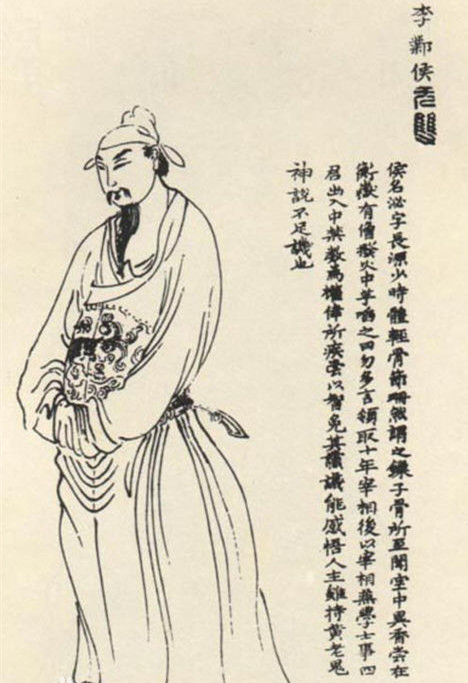 李鄴侯
侯名泌字長源少時體輕骨節珊然謂之鏁子骨所至聞室中異香嘗在
衡嶽有僧撥火中芋啗之曰勿多言領取十年宰相後以宰相兼學士事四
君出入中禁數為權倖所疾常以智免其讜議能感悟人主雖持黃老鬼
神說不足譏也